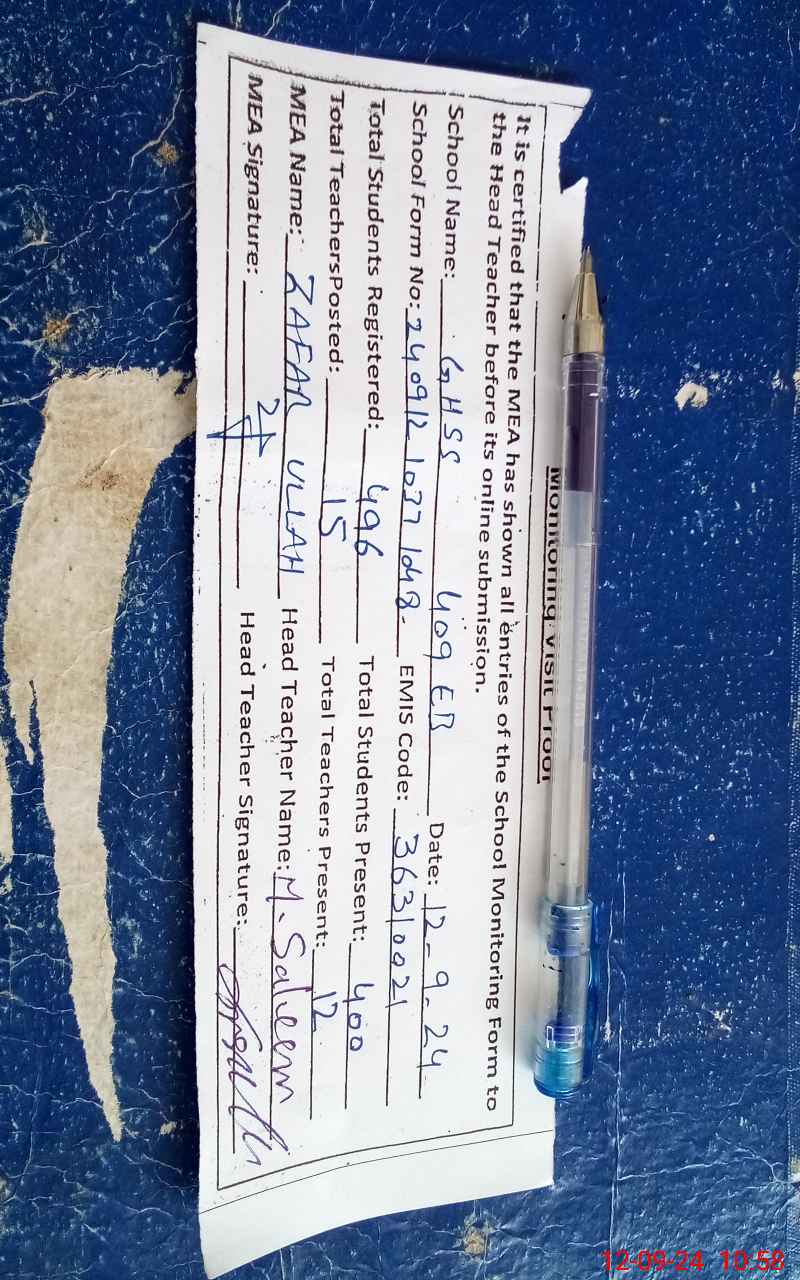 Monitoring Visit Proof
It is certified that the MEA has shown all entries of the School Monitoring Form to
the Head Teacher before its online submission.
School Name: GHSS 409 EB Date: 12-9-24
School Form No: 24091210371048- EMIS Code: 36310021
Total Students Registered: 496 Total Students Present: 400
Total TeachersPosted: 15 Total Teachers Present: 12
MEA Name: ZAFAR ULLAH Head Teacher Name: M. Saleem
MEA Signature: Head Teacher Signature:
12-09-24 10:58